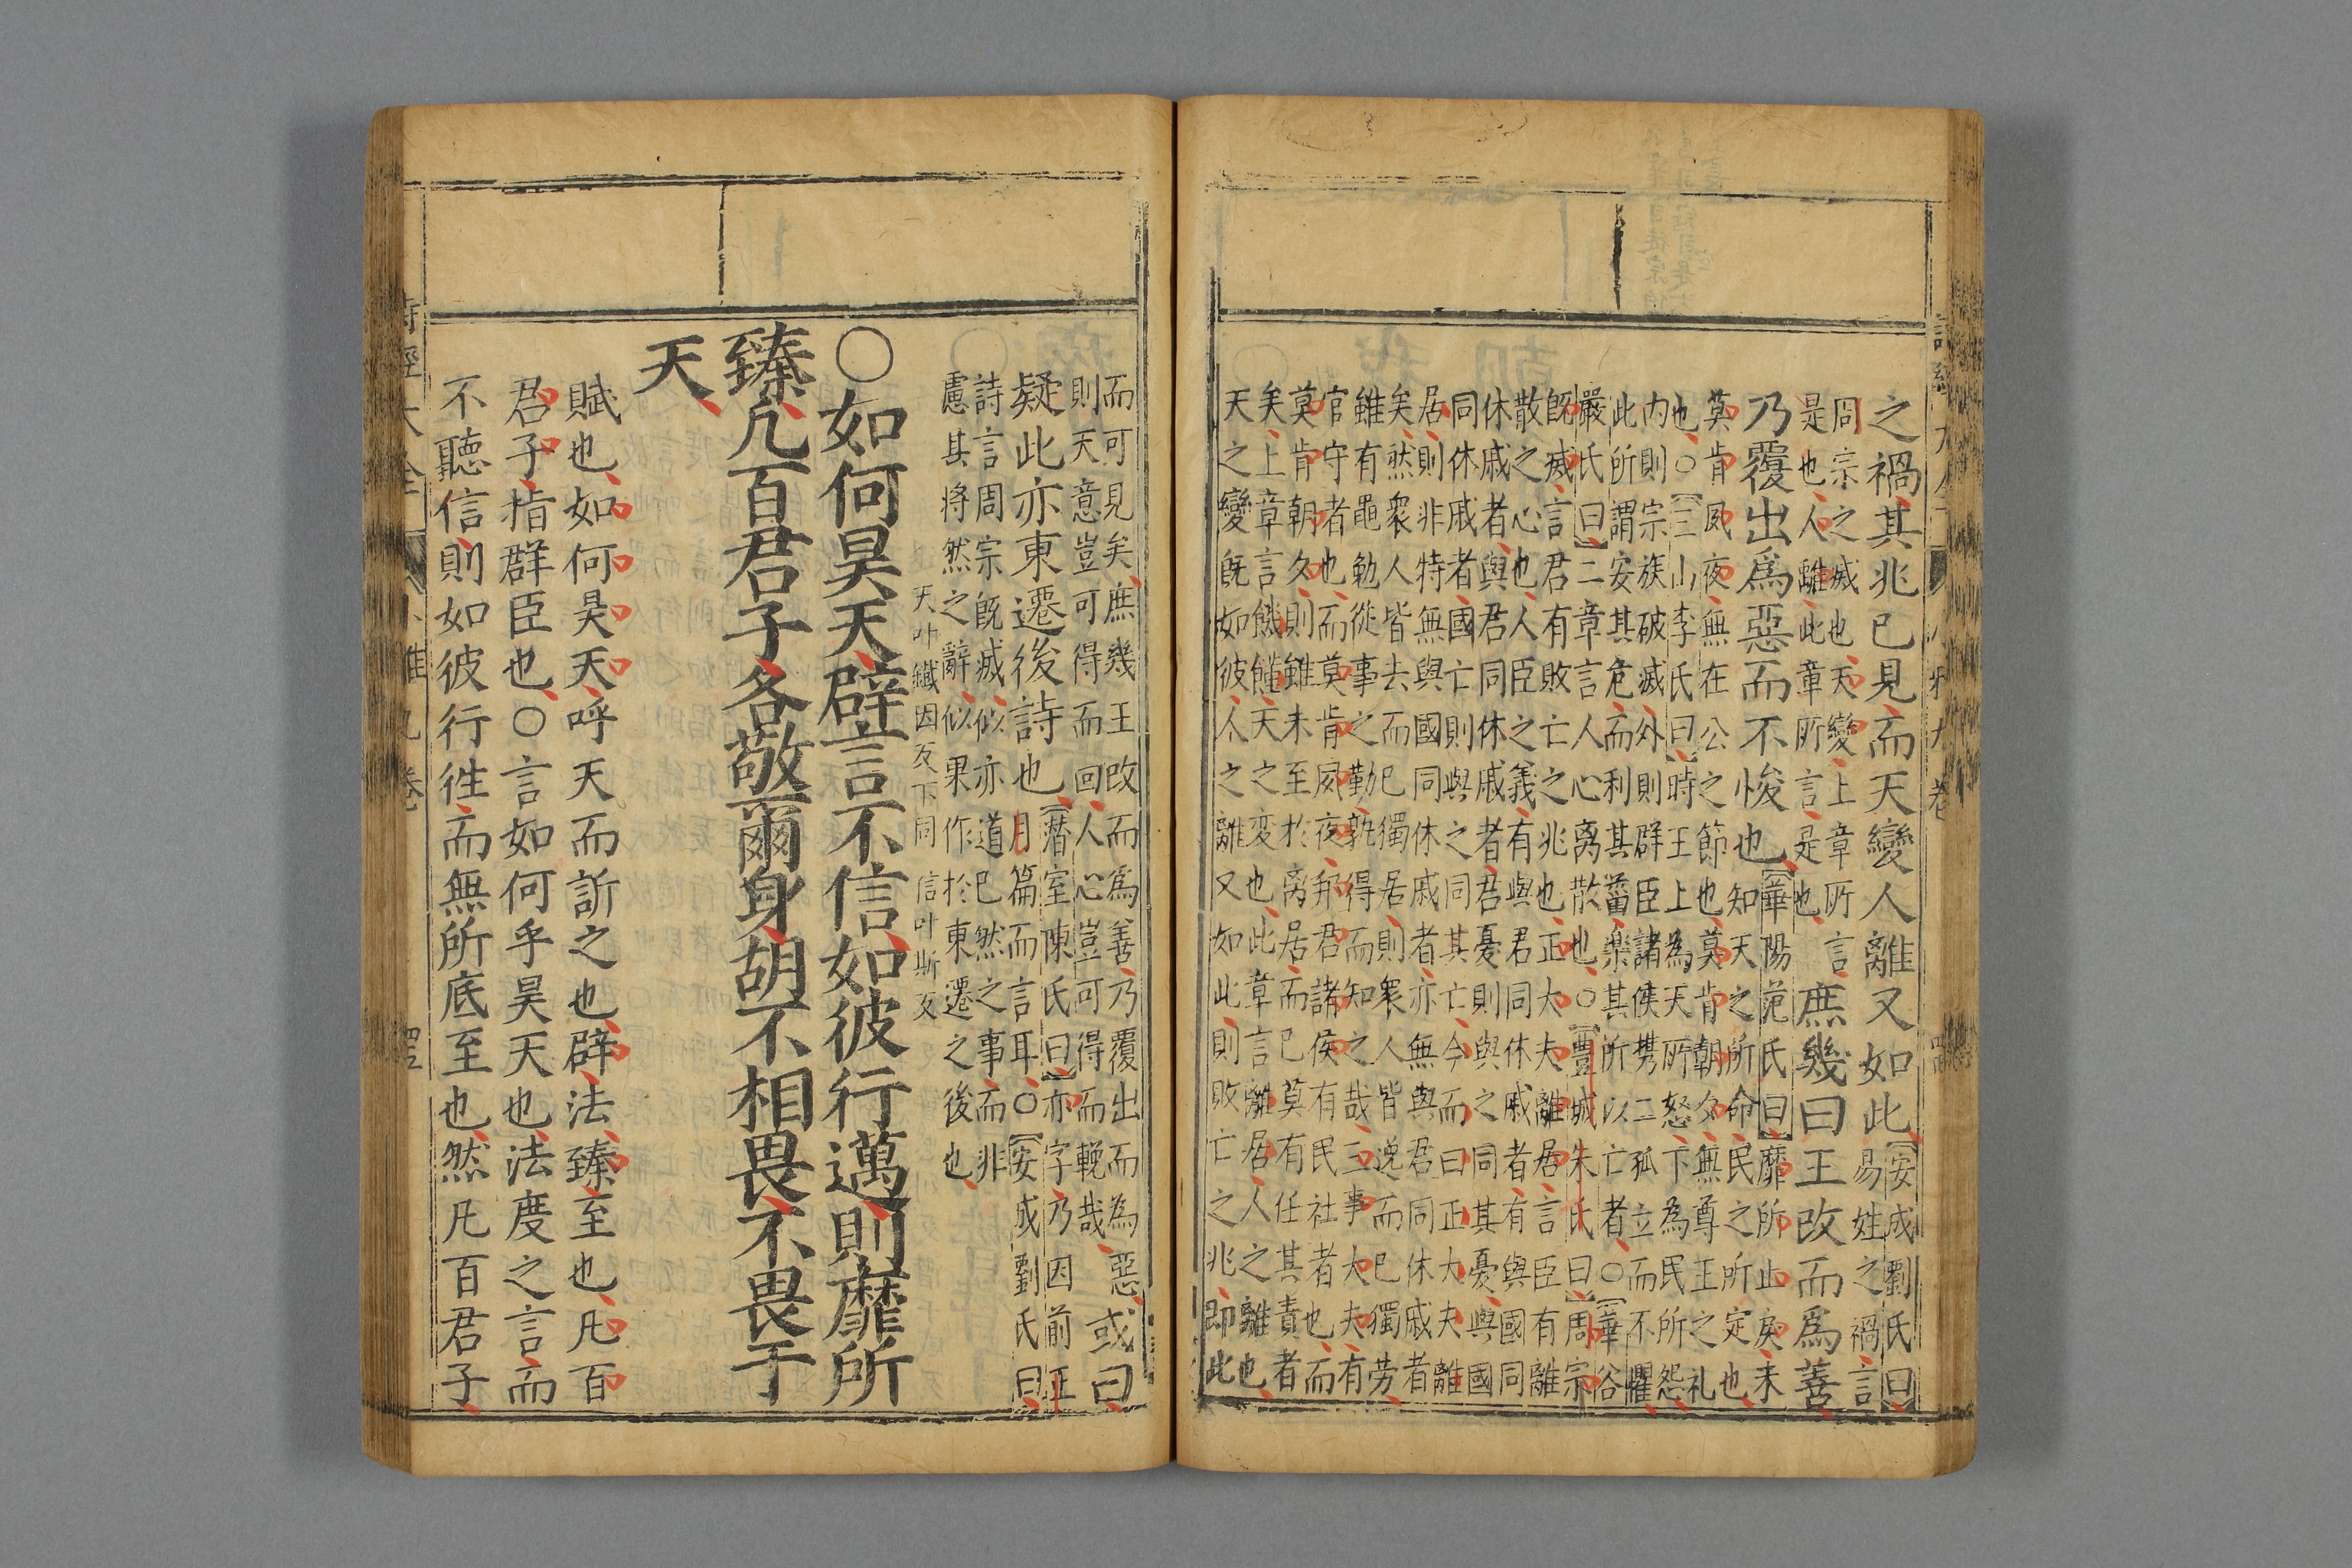 之禍其兆已見而天變人離又如此安成劉氏曰
易姓之禍言
周宗之㓕也天變上章所言
是也人離此章所言是也庶幾曰王改而爲善
乃覆出爲惡而不悛也華陽范氏曰靡所止戾未
知天之所命民之所定也
莫肯夙夜無在公之節也莫肯朝夕無尊王之礼
也○三山李氏曰時王上為天所怒下為民所怨
内則宗族破滅外則群臣諸侯携二孤立而不懼
此所謂安其危而利其葘楽其所以亡者○華谷
嚴氏曰二章言人心离散也○豐城朱氏曰周宗
既㓕言君有敗亡之兆也正大夫離居言臣有離
散之心也人臣之義有與君同休戚者有與國同
休戚者與君同休戚者君憂則與之同其憂與國
同休戚者國亡則與之同其亡今而曰正大夫離
居則非特無與國同休戚者亦無與君同休戚者
矣然衆人皆去而已獨居則衆人皆逸而已獨劳
雖有黽勉從事之勤孰得而知之哉三事大夫有
官守者也而莫肯夙夜邦君諸侯有民社者也而
莫肯朝夕則雖未至於离居而已莫有任其責者
矣上章言饑饉天之変也此章言離居人之離也
天之變既如彼人之離又如此則敗亡之兆即此
而可見矣庶幾王改而為善乃覆出而為惡
則天意豈可得而回人心豈可得而輓哉或曰
疑此亦東遷後詩也暦室陳氏曰亦字乃因前正
月篇而言耳○安成劉氏曰
詩言周宗既㓕似亦道已然之事而非
慮其将然之辭似果作於東遷之後也
天叶鐵因反下同 信叶斯反
○如何昊天辟言不信如彼行邁則靡所
臻凡百君子各敬爾身胡不相畏不畏于
天
賦也如何昊天呼天而訢之也辟法臻至也凡百
君子指群臣也○言如何乎昊天也法度之言而
不聽信則如彼行徃而無所底至也然凡百君子